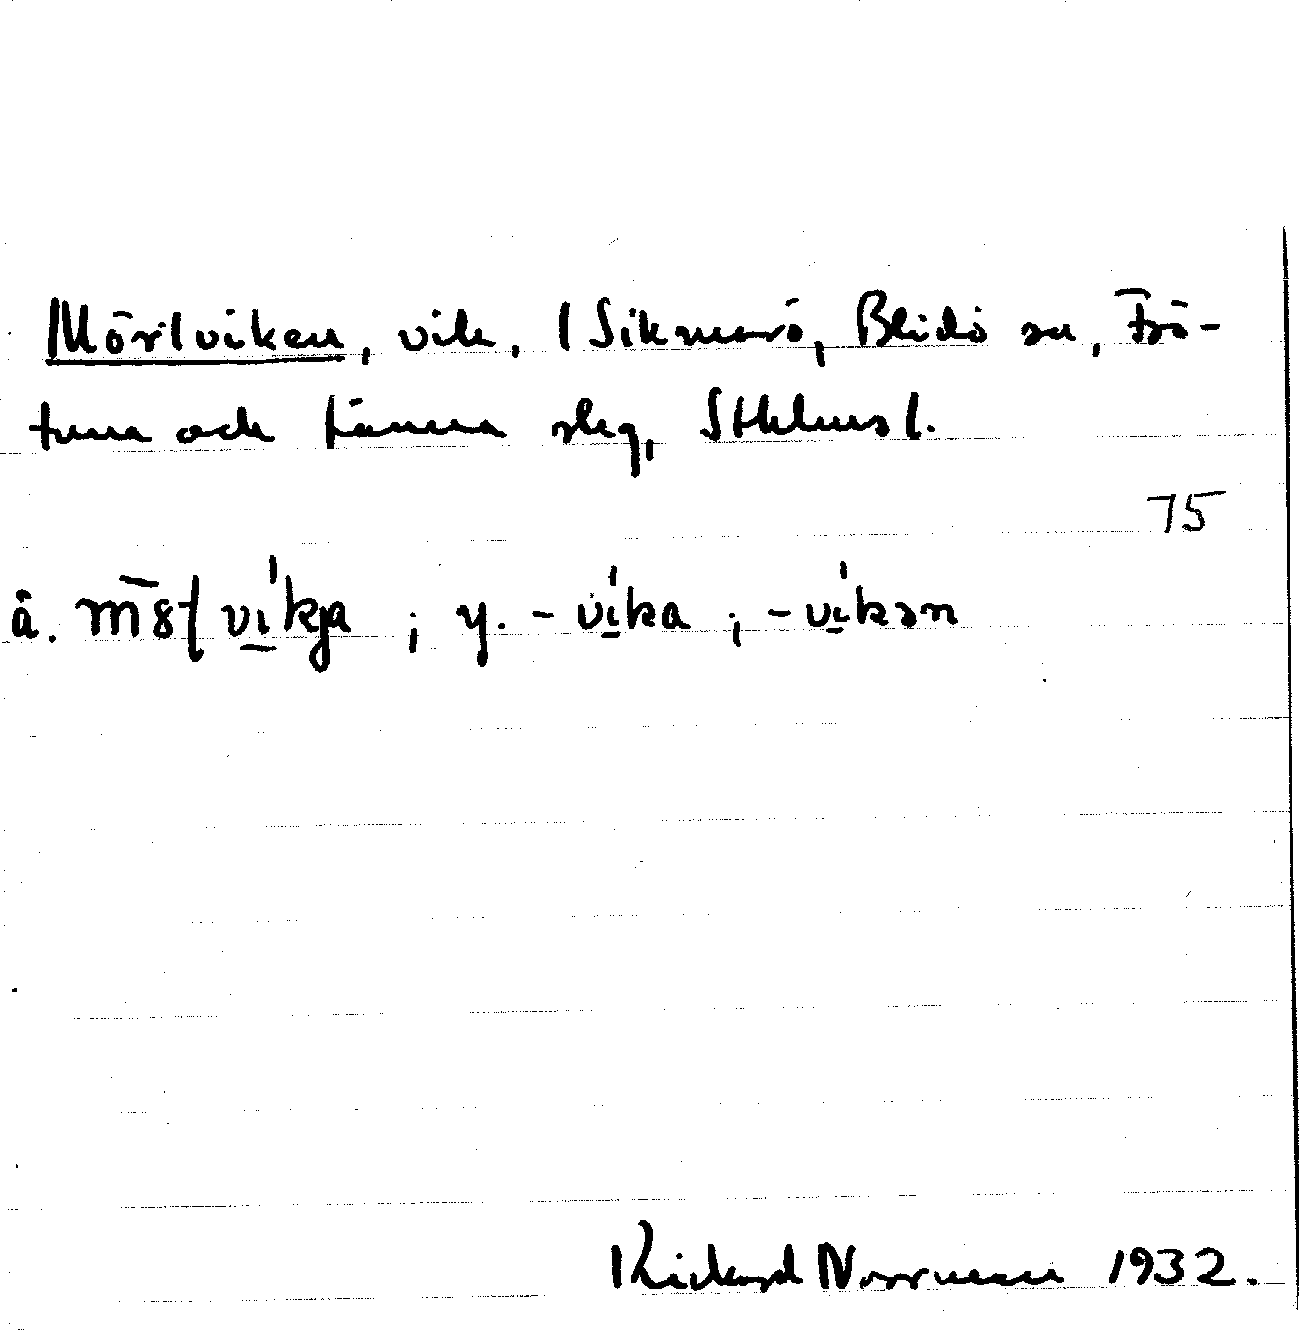 Mörtviken, vik, i Sikmarö, Blidö sn, Frö-
tuna och Länna skg, Sthlms l.
75
å. vi̲kja ; y. - vi̲ka ; - vi̲kən
Rickard Norrman 1932.